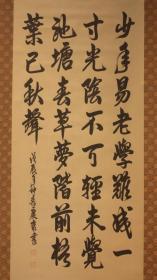 少年易老學難成一
寸光陰不可輕未覺
池塘春草夢階前梧
葉已秋聲
戊辰
書